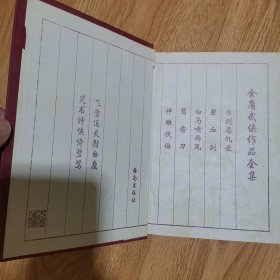 金庸武侠作品全集
书剑恩仇录
碧血剑
白马啸西风
鸳鸯刀
神雕侠侣
海南出版社
飞雪连天射白鹿
笑书神侠倚碧鸳